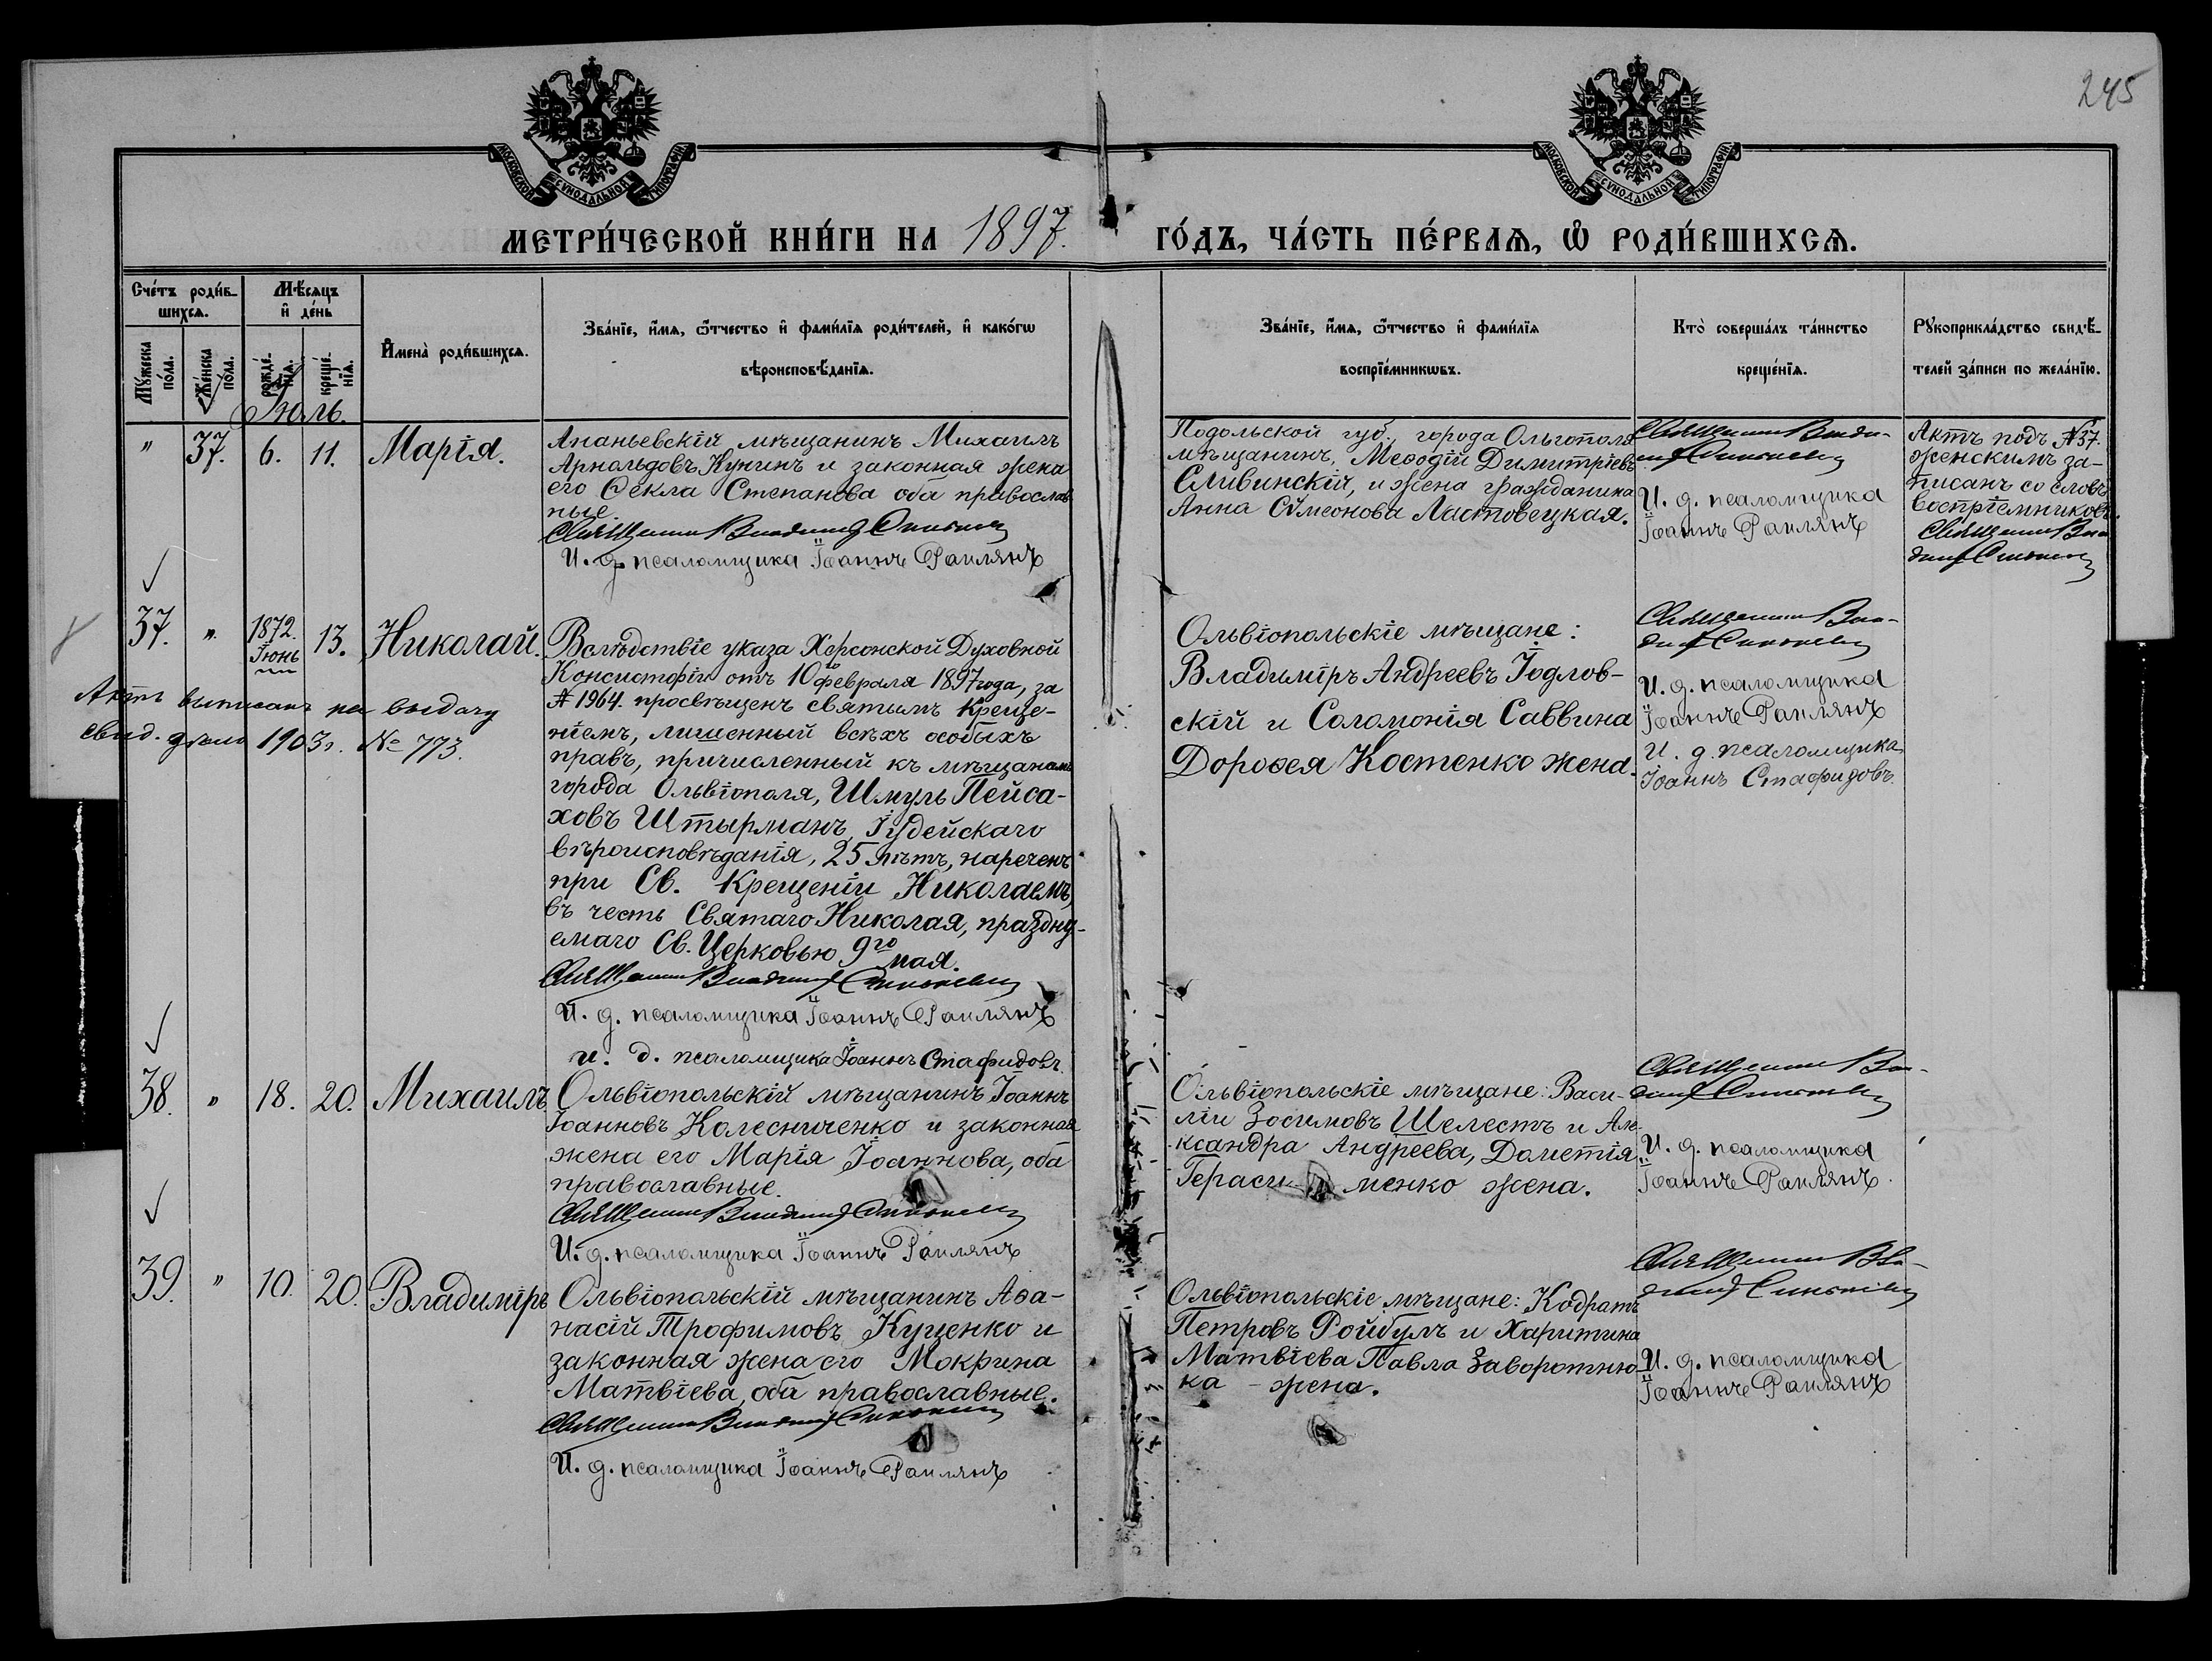 245
МОСКОВСКОЙ СѴНОДАЛЬНОЙ ТИПОГРАФІИ
МОСКОВСКОЙ СѴНОДАЛЬНОЙ ТИПОГРАФІИ
МЕТРИ́ЧЕСКОЙ КНИ́ГИ НА 1897. ГО́ДЪ, ЧА́СТЬ ПЕ́РВАѦ, Ѡ҆ РОДИ́ВШИХСѦ.
Сче́тъ роди́в-
шихсѧ.
Мꙋ́жеска по́ла.
Же́нска по́ла.
Мѣ́сѧцъ
и҆ де́нь
рожде́-нїѧ.
креще́-нїѧ.
И҆мена̀ роди́вшихсѧ.
Зва́нїе, и҆́мѧ, ѻ҆́тчество и҆ фами́лїѧ роди́телей, и҆ како́гѡ
вѣроисповѣ́данїѧ.
Зва́нїе, и҆́мѧ, ѻ҆́тчество и҆ фами́лїѧ
воспрїе́мникѡвъ.
Кто̀ соверша́лъ та́инство
креще́нїѧ.
Рꙋкоприкла́дство свидѣ́-
телей за́писи по жела́нїю.
Іюль.
" 37. 6. 11. Марія.
Ананьевскій мѣщанинъ Михаилъ
Арнольдовъ Кунинъ и законная жена
его Ѳекла Степанова оба православ
ные.
Священникъ
И. д. псаломщика Іоаннъ Раилянъ
Подольской губ., города Ольгополя
мѣщанинъ, Меѳодій Димитріевъ
Сливинскій, и жена гражданина
Анна Сѵмеонова Ластовецкая.
Священникъ Влади-
И. д. псаломщика
Іоаннъ Раилянъ
Актъ подъ №37.
женскимъ за-
писанъ со словъ
воспріемниковъ.
Священникъ Вла
37. " 1872. Іюнь 13. Николай.
Вслѣдствіе указа Херсонской Духовной
Консисторіи отъ 10го февраля 1897 года, за
№ 1964. просвѣщенъ святымъ Креще-
ніемъ, лишенный всѣхъ особыхъ
правъ, причисленный къ мѣщанамъ
города Ольвіополя, Шмуль Пейса-
ховъ Штырманъ, Іудейскаго
вѣроисповѣданія, 25 лѣтъ, нареченъ
при Св. Крещеніи Николаемъ,
въ честь Святаго Николая, праздну-
емаго Св. Церковью 9го мая.
Священникъ
И. д. псаломщика Іоаннъ Раилянъ
и. д. псаломщика Іоаннъ Стафидовъ.
Актъ выписанъ на выдачу
свид. дѣло 1903 г. № 773.
Ольвіопольскіе мѣщане:
Владиміръ Андреевъ Іодлов-
скій и Соломонія Саввина
Дороѳея Костенко жена.
Священникъ Вла-
И. д. псаломщика
Іоаннъ Раилянъ
И. д. псаломщика
Іоаннъ Стафидовъ.
38. " 18. 20. Михаилъ
Ольвіопольскій мѣщанинъ Іоаннъ
Іоанновъ Колесниченко и законная
жена его Марія Іоаннова, оба
православные.
Священникъ
И. д. псаломщика Іоаннъ Раилянъ
Ольвіопольскіе мѣщане: Васи-
лій Зосимовъ Шелестъ и Але-
ксандра Андреева, Дометія
Гераси- менко жена.
Священникъ Вла-
И. д. псаломщика
Іоаннъ Раилянъ.
39. " 10. 20. Владиміръ
Ольвіопольскій мѣщанинъ Аѳа-
насій Трофимовъ Куценко и
законная жена его Мокрина
Матвіева, оба православные.
Священникъ
И. д. псаломщика Іоаннъ Раилянъ
Ольвіопольскіе мѣщане: Кодратъ
Петровъ Ройбулъ и Харитина
Матвіева Павла Заворотню-
ка - жена.
Священникъ Вла-
И. д. псаломщика
Іоаннъ Раилянъ